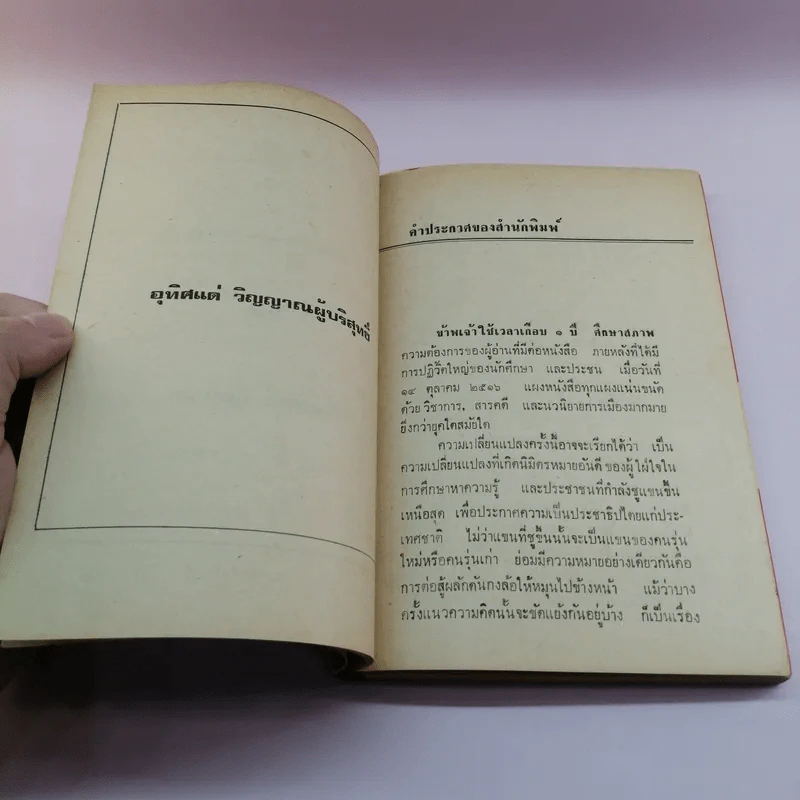 อุทิศแด่ วิญญาณผู้บริสุทธิ์
คำประกาศของสำนักพิมพ์
ข้าพเจ้าใช้เวลาเกือบ ๑ ปี ศึกษาสภาพ
ความต้องการของผู้อ่านที่มีต่อหนังสือ ภายหลังที่ได้มี
การปฏิวัติใหญ่ของนักศึกษา และประชน เมื่อวันที่
๑๔ ตุลาคม ๒๕๑๖ แผงหนังสือทุกแผงแน่นขนัด
ด้วย วิชาการ, สารคดี และนวนิยายการเมืองมากมาย
ยิ่งกว่ายุคใดสมัยใด
ความเปลี่ยนแปลงครั้งนี้อาจจะเรียกได้ว่า เป็น
ความเปลี่ยนแปลงที่เกิดนิมิตรหมายอันดี ของผู้ใฝ่ใจใน
การศึกษาหาความรู้ และประชาชนที่กำลังชูแขนขึ้น
เหนือสุด เพื่อประกาศความเป็นประชาธิปไตยแก่ประ-
เทศชาติ ไม่ว่าแขนที่ชูขึ้นนั้นจะเป็นแขนของคนรุ่น
ใหม่หรือคนรุ่นเก่า ย่อมมีความหมายอย่างเดียวกันคือ
การต่อสู้ผลักดันกงล้อให้หมุนไปข้างหน้า แม้ว่าบาง
ครั้งแนวความคิดนั้นจะขัดแย้งกันอยู่บ้าง ก็เป็นเรื่อง